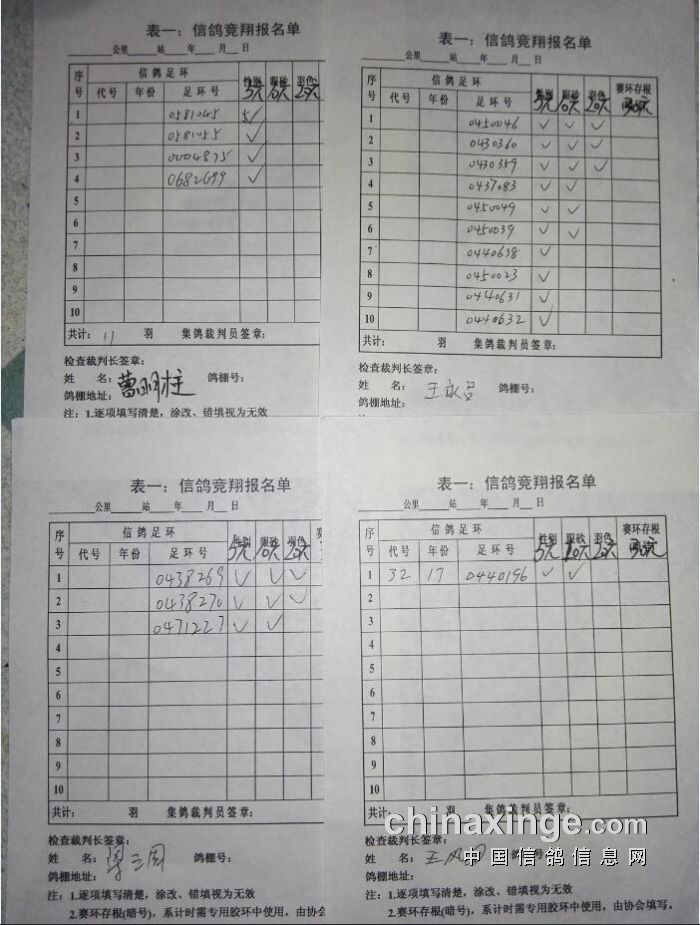 表一：信鸽竞翔报名单
公里 站 年 月 日
序号 信鸽足环
代号 年份 足环号 性别 眼砂 羽色
5元 10元 20元
1 0581045 ✓
2 0581055 ✓
3 0004875 ✓
4 0682699 ✓
5
6
7
8
9
10
共计： 11 羽 集鸽裁判员签章：
检查裁判长签章：
姓 名：曹明柱 鸽棚号：
鸽棚地址：
注：1.逐项填写清楚，涂改、错填视为无效
表一：信鸽竞翔报名单
公里 站 年 月 日
序号 信鸽足环 赛环存根
代号 年份 足环号 性别 眼砂 羽色
5元 10元 20元
1 0450046 ✓ ✓ ✓
2 0430360 ✓ ✓ ✓
3 0430359 ✓ ✓ ✓
4 0437083 ✓ ✓
5 0450049 ✓ ✓
6 0450039 ✓ ✓
7 0440638 ✓
8 0450023 ✓
9 0440631 ✓
10 0440632 ✓
共计： 羽 集鸽裁判员签章：
检查裁判长签章：
姓 名：王永吕 鸽棚号：
鸽棚地址：
表一：信鸽竞翔报名单
公里 站 年 月 日
序号 信鸽足环
代号 年份 足环号 性别 眼砂 羽色
5元 10元 20元
1 0438269 ✓ ✓ ✓
2 0438270 ✓ ✓ ✓
3 0471227 ✓ ✓
4
5
6
7
8
9
10
共计： 羽 集鸽裁判员签章：
检查裁判长签章：
姓 名： 鸽棚号：
鸽棚地址：
注：1.逐项填写清楚，涂改、错填视为无效
2.赛环存根(暗号)，系计时需专用胶环中使用，由协会
表一：信鸽竞翔报名单
公里 站 年 月 日
序号 信鸽足环 赛环存根
代号 年份 足环号 性别 眼砂 羽色
5元 10元 20元
1 32 17 0440196 ✓ ✓
2
3
4
5
6
7
8
9
10
共计： 羽 集鸽裁判员签章：
检查裁判长签章：
姓 名：王凤
鸽棚地址：
注：1.逐项填写清楚，涂改、错填视为无效
2.赛环存根(暗号)，系计时需专用胶环中使用，由协会填写。
chinaxinge.com
中国信鸽信息网